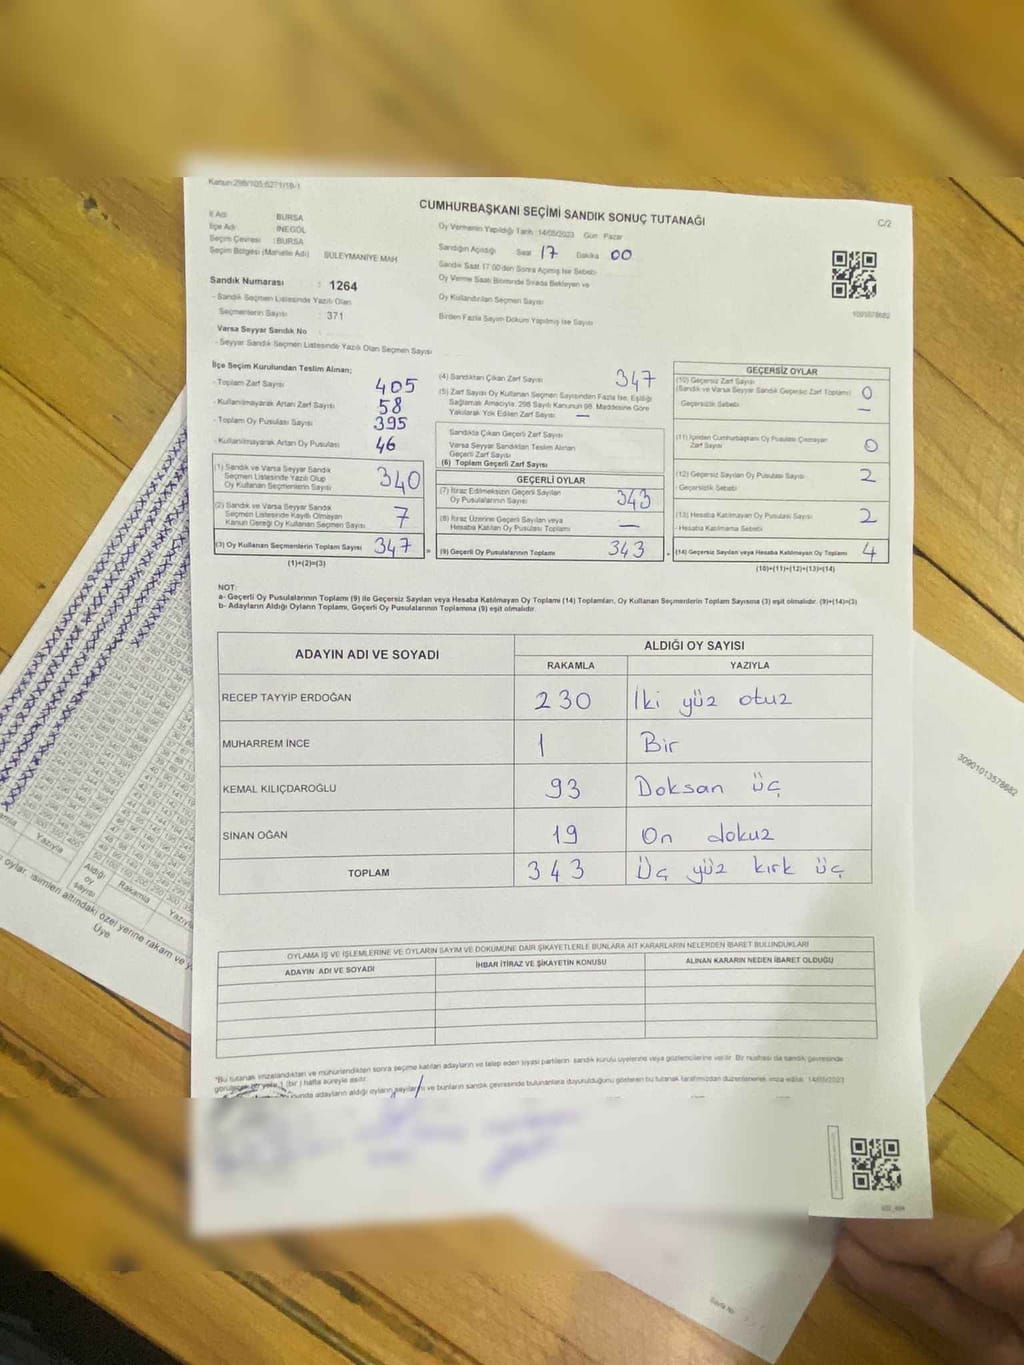 Kanun:298/105;6271/19/1
CUMHURBAŞKANI SEÇİMİ SANDIK SONUÇ TUTANAĞI
C/2
İl Adı BURSA
İlçe Adı : İNEGÖL
Seçim Çevresi : BURSA
Seçim Bölgesi (Mahalle Adı) SÜLEYMANİYE MAH
Oy Vermenin Yapıldığı Tarih :14/05/2023 Gün : Pazar
Sandığın Açıldığı Saat 17 Dakika 00
Sandık Saat 17:00'den Sonra Açılmış İse Sebebi
Oy Verme Saati Bitiminde Sırada Bekleyen ve
Oy Kullandırılan Seçmen Sayısı
Birden Fazla Sayım Döküm Yapılmış İse Sayısı
1093578682
Sandık Numarası : 1264
- Sandık Seçmen Listesinde Yazılı Olan
Seçmenlerin Sayısı : 371
Varsa Seyyar Sandık No
- Seyyar Sandık Seçmen Listesinde Yazılı Olan Seçmen Sayısı
İlçe Seçim Kurulundan Teslim Alınan;
- Toplam Zarf Sayısı 405
- Kullanılmayarak Artan Zarf Sayısı 58
- Toplam Oy Pusulası Sayısı 395
- Kullanılmayarak Artan Oy Pusulası 46
(1) Sandık ve Varsa Seyyar Sandık
Seçmen Listesinde Yazılı Olup
Oy Kullanan Seçmenlerin Sayısı 340
(2) Sandık ve Varsa Seyyar Sandık
Seçmen Listesinde Kayıtlı Olmayan
Kanun Gereği Oy Kullanan Seçmen Sayısı 7
(3) Oy Kullanan Seçmenlerin Toplam Sayısı 347 =
(1)+(2)=(3)
(4) Sandıktan Çıkan Zarf Sayısı 347
(5) Zarf Sayısı Oy Kullanan Seçmen Sayısından Fazla İse, Eşitliği
Sağlamak Amacıyla, 298 Sayılı Kanunun 98. Maddesine Göre
Yakılarak Yok Edilen Zarf Sayısı —
Sandıkta Çıkan Geçerli Zarf Sayısı
Varsa Seyyar Sandıktan Teslim Alınan
Geçerli Zarf Sayısı
(6) Toplam Geçerli Zarf Sayısı
GEÇERLİ OYLAR
(7) İtiraz Edilmeksizin Geçerli Sayılan
Oy Pusulalarının Sayısı 343
(8) İtiraz Üzerine Geçerli Sayılan veya
Hesaba Katılan Oy Pusulası Toplamı —
(9) Geçerli Oy Pusulalarının Toplamı 343
GEÇERSİZ OYLAR
(10) Geçersiz Zarf Sayısı
(Sandık ve Varsa Seyyar Sandık Geçersiz Zarf Toplamı) 0
Geçersizlik Sebebi —
(11) İçinden Cumhurbaşkanı Oy Pusulası Çıkmayan
Zarf Sayısı 0
(12) Geçersiz Sayılan Oy Pusulası Sayısı 2
- Geçersizlik Sebebi
(13) Hesaba Katılmayan Oy Pusulası Sayısı 2
- Hesaba Katılmama Sebebi
(14) Geçersiz Sayılan veya Hesaba Katılmayan Oy Toplamı 4
(10)+(11)+(12)+(13)=(14)
NOT:
a- Geçerli Oy Pusulalarının Toplamı (9) ile Geçersiz Sayılan veya Hesaba Katılmayan Oy Toplamı (14) Toplamları, Oy Kullanan Seçmenlerin Toplam Sayısına (3) eşit olmalıdır. (9)+(14)=(3)
b- Adayların Aldığı Oyların Toplamı, Geçerli Oy Pusulalarının Toplamına (9) eşit olmalıdır.
ADAYIN ADI VE SOYADI
ALDIĞI OY SAYISI
RAKAMLA YAZIYLA
RECEP TAYYİP ERDOĞAN 230 İki yüz otuz
MUHARREM İNCE 1 Bir
KEMAL KILIÇDAROĞLU 93 Doksan üç
SİNAN OĞAN 19 On dokuz
TOPLAM 343 Üç yüz kırk üç
OYLAMA İŞ VE İŞLEMLERİNE VE OYLARIN SAYIM VE DÖKÜMÜNE DAİR ŞİKAYETLERLE BUNLARA AİT KARARLARIN NELERDEN İBARET BULUNDUKLARI
ADAYIN ADI VE SOYADI
İHBAR İTİRAZ VE ŞİKAYETİN KONUSU
ALINAN KARARIN NEDEN İBARET OLDUĞU
*Bu tutanak imzalandıktan ve mühürlendikten sonra seçime katılan adayların ve talep eden siyasi partilerin sandık kurulu üyelerine veya gözlemcilerine verilir. Bir nüshası da sandık çevresinde
(bir) hafta süreyle asılır.
adayların aldığı oyların sayıları ve bunların sandık çevresinde bulunanlara duyurulduğunu gösteren bu tutanak tarafımızdan düzenlenerek imza edildi. 14/05/2023
30901013578682
Yazıyla
Aldığı
oy
sayısı
Rakamla
Yazıyla
oylar, isimleri altındaki özel yerine rakam ve
Üye
Sayfa No